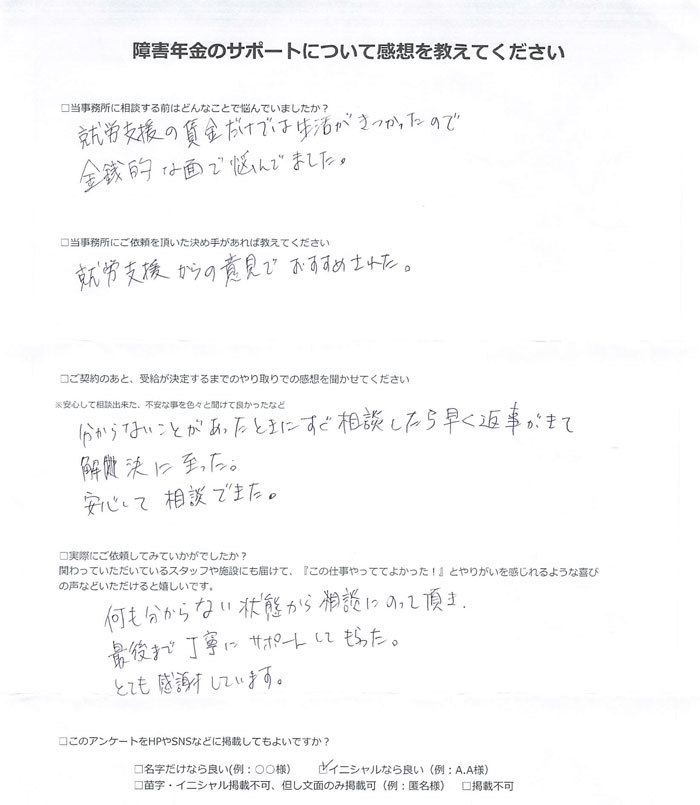 障害年金のサポートについて感想を教えてください
□当事務所に相談する前はどんなことで悩んでいましたか？
就労支援の賃金だけでは生活がきつかったので
金銭的な面で悩んでました。
□当事務所にご依頼を頂いた決め手があれば教えてください
就労支援からの意見でおすすめされた。
□ご契約のあと、受給が決定するまでのやり取りでの感想を聞かせてください
※安心して相談出来た、不安な事を色々と聞けて良かったなど
分からないことがあったときにすぐ相談したら早く返事がきて
解決に至った。
安心して相談できた。
□実際にご依頼してみていかがでしたか？
関わっていただいているスタッフや施設にも届けて、『この仕事やっててよかった！』とやりがいを感じれるような喜び
の声などいただけると嬉しいです。
何も分からない状態から相談にのって頂き、
最後まで丁寧にサポートしてもらった。
とても感謝しています。
□このアンケートをHPやSNSなどに掲載してもよいですか？
□名字だけなら良い(例：〇〇様） ☑イニシャルなら良い（例：A.A様）
□苗字・イニシャル掲載不可、但し文面のみ掲載可（例：匿名様） □掲載不可